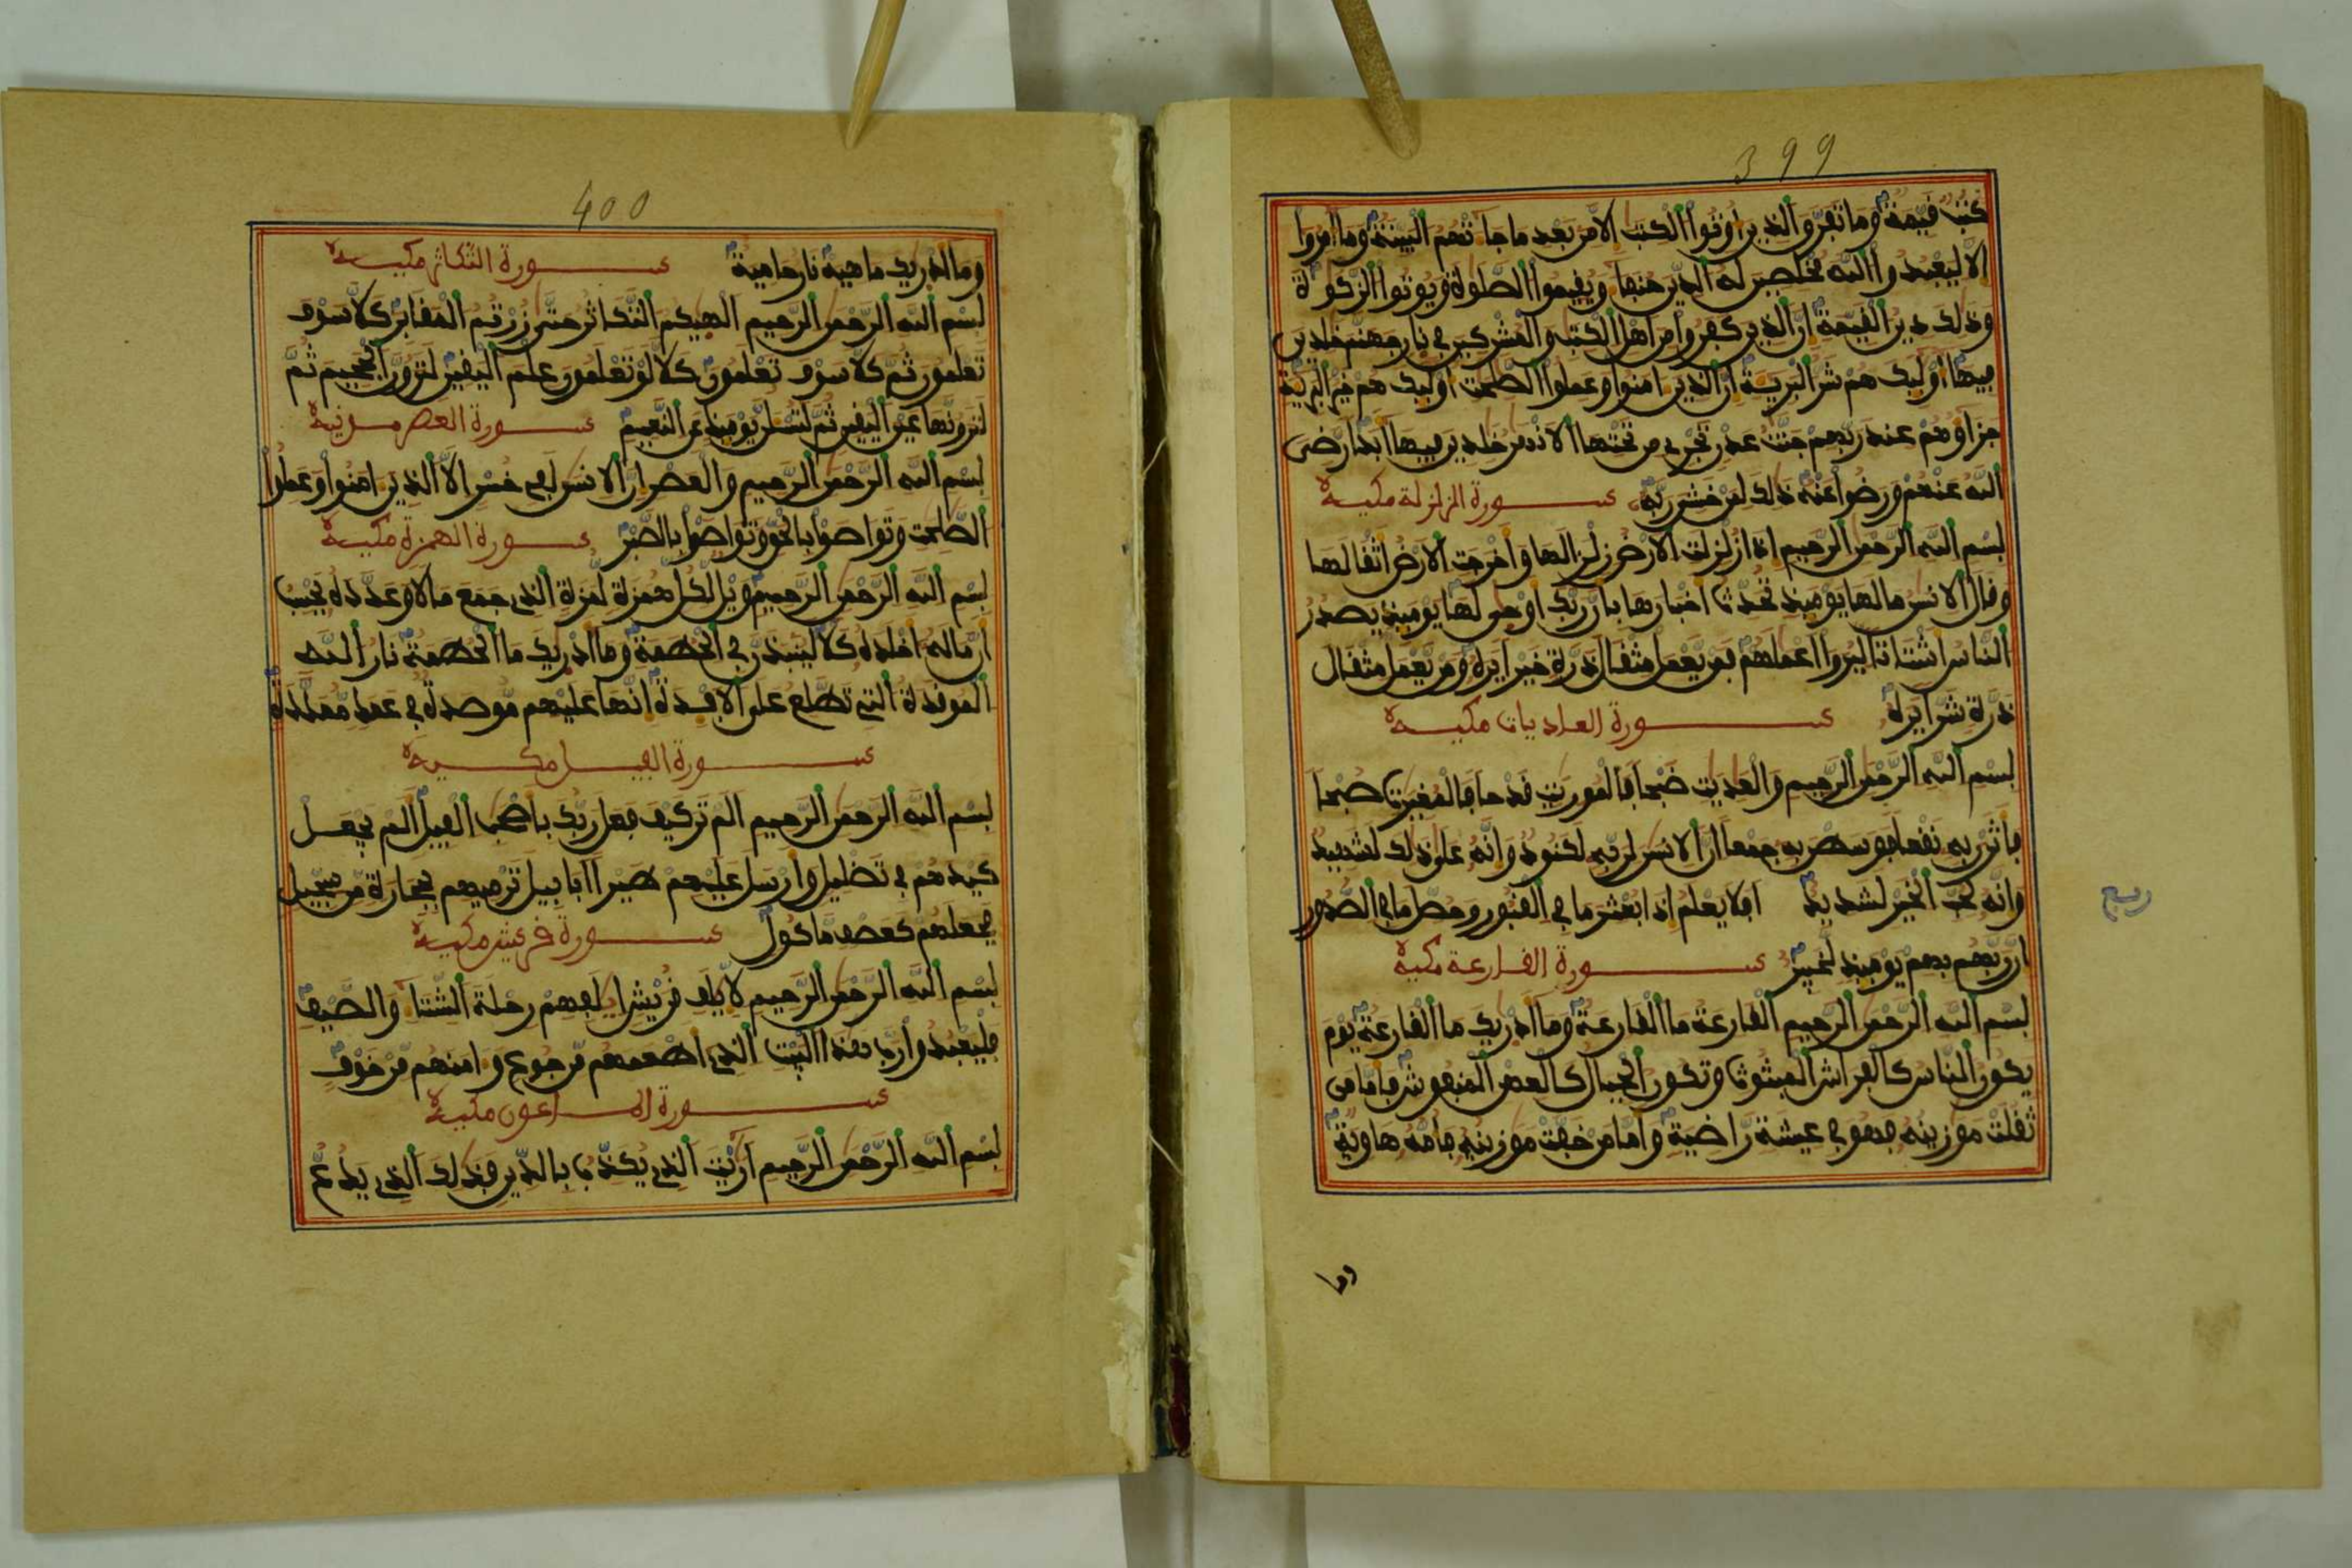 399
كتب قيمة وما تفرق الذين أوتوا الكتب الا من بعد ما جاءتهم البينة وما أمروا
الا ليعبدوا الله مخلصين له الدين حنفاء ويقيموا الصلوة ويوتوا الزكوة
وذلك دين القيمة ان الذين كفروا من أهل الكتب والمشركين في نار جهنم خلدين
فيها أوليك هم شر البرية ان الذين امنوا وعملوا الصلحت أوليك هم خير البرية
جزاؤهم عند ربهم جنت عدن تجري من تحتها الانهر خلدين فيها أبدا رضى
الله عنهم ورضوا عنه ذلك لمن خشي ربه سورة الزلزلة مكية
بسم الله الرحمن الرحيم اذا زلزلت الارض زلزالها وأخرجت الارض أثقالها
وقال الانسن مالها يوميذ تحدث أخبارها بأن ربك أوحى لها يوميذ يصدر
الناس أشتاتا ليروا أعملهم فمن يعمل مثقال ذرة خيرا يره ومن يعمل مثقال
ذرة شرا يره سورة العاديات مكية
بسم الله الرحمن الرحيم والعديت ضبحا فالموريت قدحا فالمغيرت صبحا
فأثرن به نقعا فوسطن به جمعا ان الانسن لربه لكنود وانه على ذلك لشهيد
وانه لحب الخير لشديد أفلا يعلم اذا بعثر ما في القبور وحصل ما في الصدور
ربع
ان ربهم بهم يوميذ لخبير سورة القارعة مكية
بسم الله الرحمن الرحيم القارعة ما القارعة وما أدريك ما القارعة يوم
يكون الناس كالفراش المبثوث وتكون الجبال كالعهن المنفوش فأما من
ثقلت موزينه فهو في عيشة راضية وأما من خفت موزينه فأمه هاوية
وما
400
وما أدريك ما هيه نار حامية سورة التكاثر مكية
بسم الله الرحمن الرحيم ألهيكم التكاثر حتى زرتم المقابر كلا سوف
تعلمون ثم كلا سوف تعلمون كلا لو تعلمون علم اليقين لترون الجحيم ثم
لترونها عين اليقين ثم لتسلن يوميذ عن النعيم سورة العصر
بسم الله الرحمن الرحيم والعصر ان الانسن لفي خسر الا الذين امنوا وعملوا
الصلحت وتواصوا بالحق وتواصوا بالصبر سورة الهمزة مكية
بسم الله الرحمن الرحيم ويل لكل همزة لمزة الذي جمع مالا وعدده يحسب
أن ماله أخلده كلا لينبذن في الحطمة وما أدريك ما الحطمة نار الله
الموقدة التي تطلع على الافدة انها عليهم موصدة في عمد ممددة
سورة الفيل مكية
بسم الله الرحمن الرحيم ألم تر كيف فعل ربك بأصحب الفيل ألم يجعل
كيدهم في تضليل وأرسل عليهم طيرا أبابيل ترميهم بحجارة من سجيل
فجعلهم كعصف ماكول سورة قريش مكية
بسم الله الرحمن الرحيم لايلف قريش ايلفهم رحلة الشتاء والصيف
فليعبدوا رب هذا البيت الذي أطعمهم من جوع وامنهم من خوف
سورة الماعون مكية
بسم الله الرحمن الرحيم أرءيت الذي يكذب بالدين فذلك الذي يدع